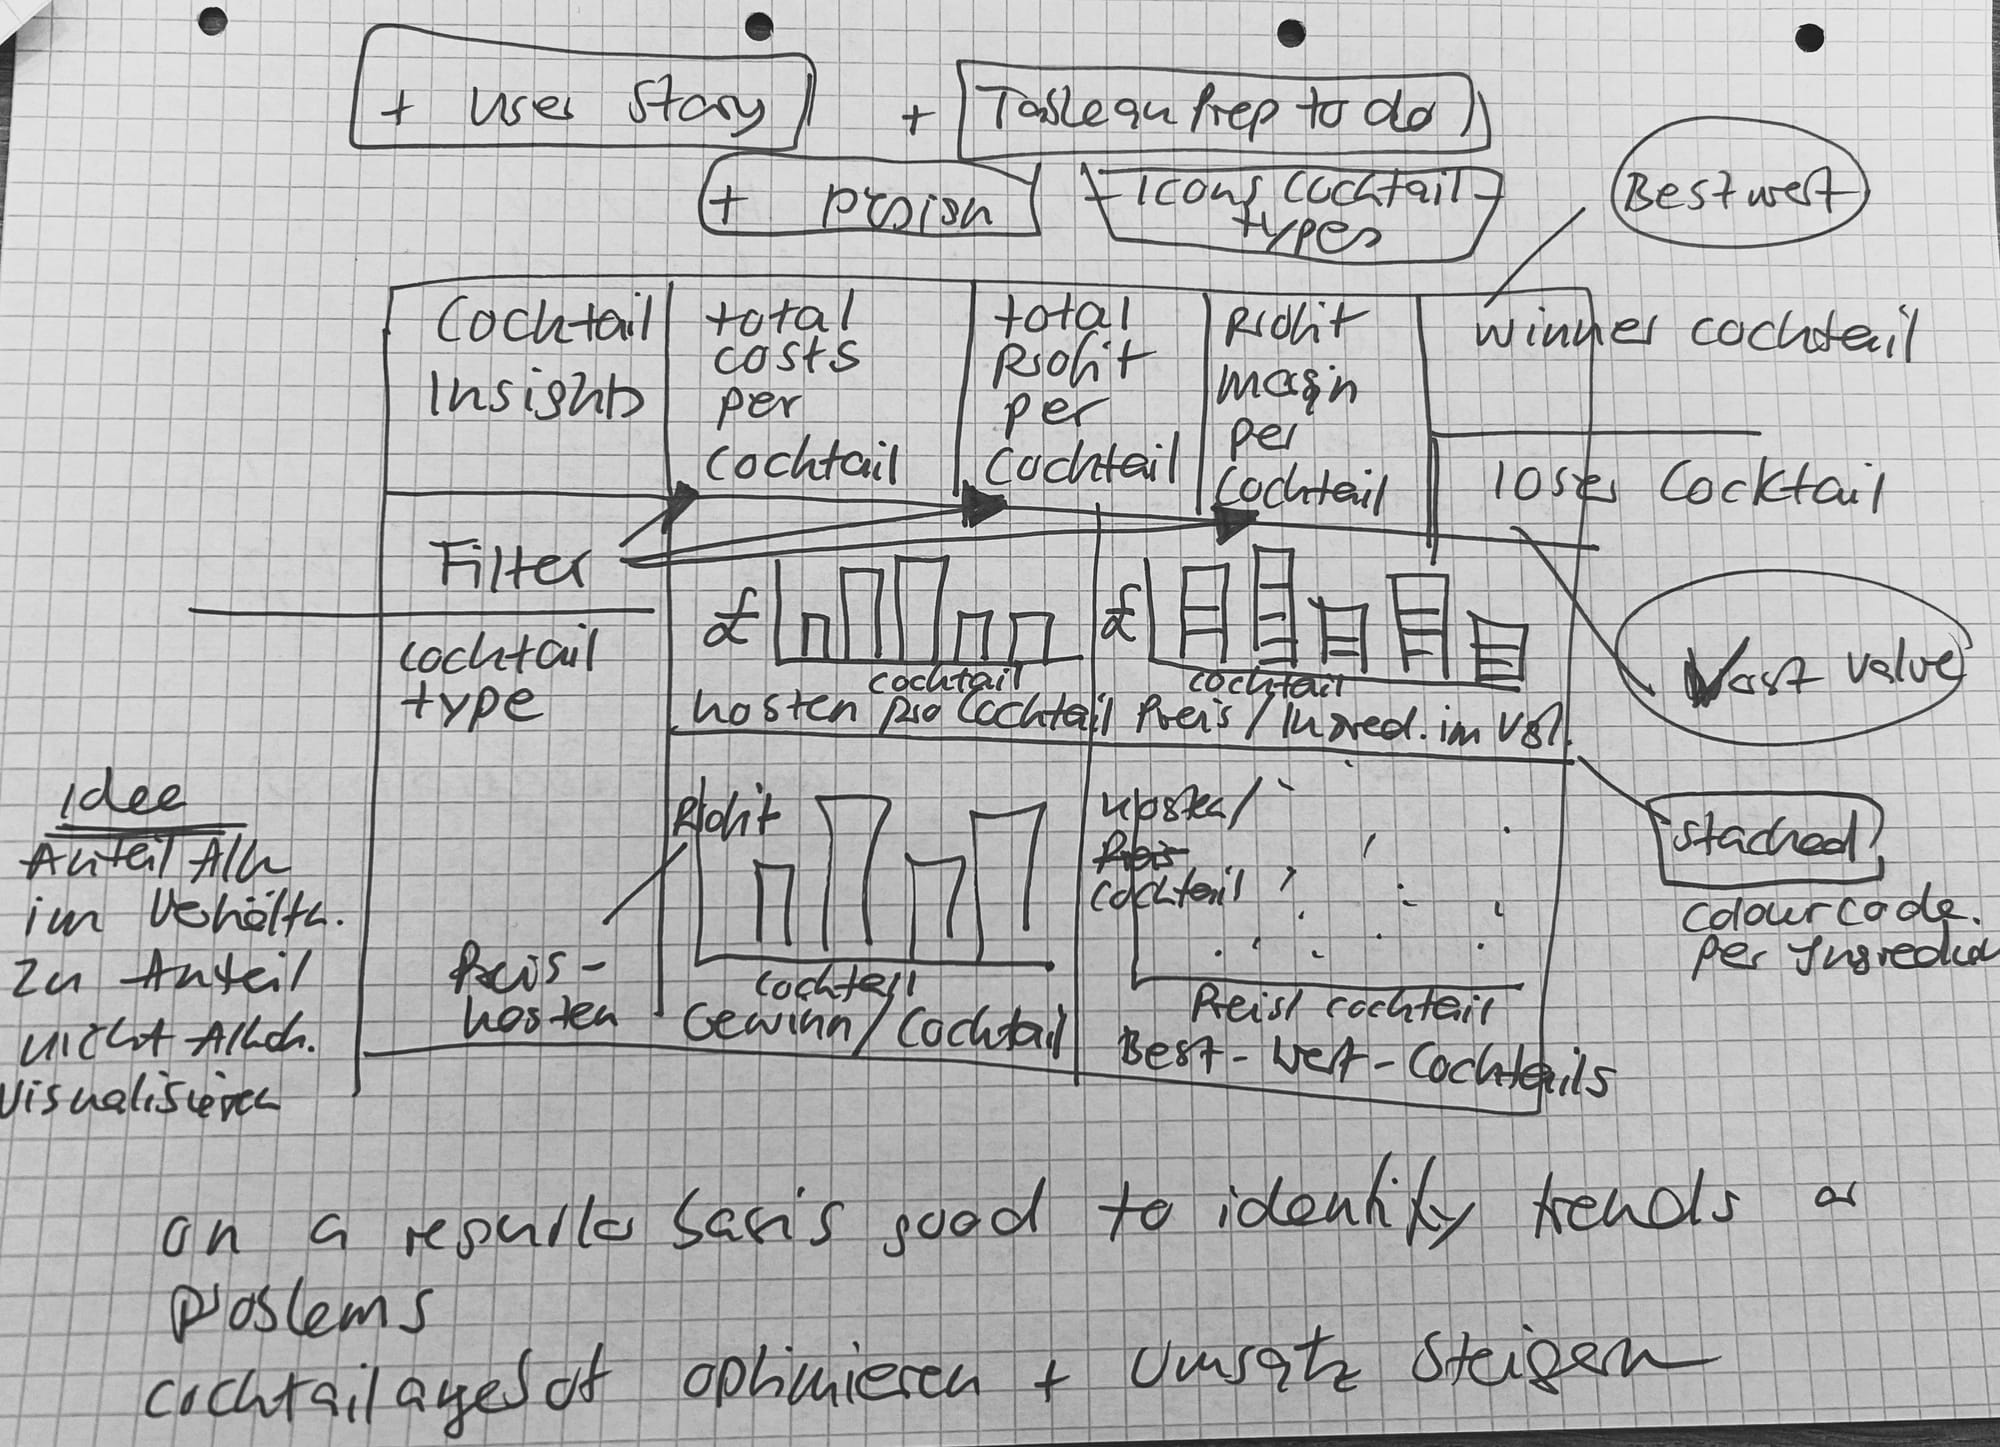 + User Story
+ Tableau Prep to do
+ Design
- Icons Cocktail -
types
Best wert
Cocktail
Insights
total
costs
per
Cocktail
total
Profit
per
Cocktail
Profit
margin
per
Cocktail
winner cocktail
loser Cocktail
Filter
cocktail
type
£
cocktail
Kosten pro Cocktail
£
cocktail
Preis / Ingred. im Vgl.
value
stacked
colour code.
per
Idee
Anteil Alk
im Verhältn.
zu Anteil
nicht Alkoh.
visualisieren
Preis -
kosten
Profit
Cocktail
Gewinn / Cocktail
Kosten /
Preis
cocktail
Preis / cocktail
Best - Wert - Cocktails
on a regular basis good to identify trends or
problems
Cocktailangebot optimieren + Umsatz steigern